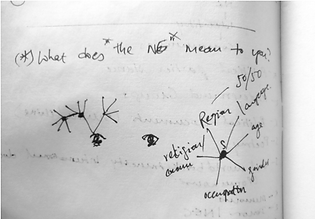 (*) What does "the " mean to you?
50/50
Region
language
age
S
religion/
gender
occupation